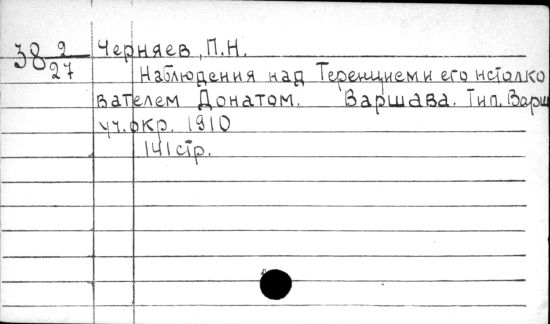 38 2/27 Черняев, П.Н.
Наблюдения над Теренцием и его истолко
вателем Донатом. Варшава. Тип. Варш
уч. окр. 1910
141 стр.